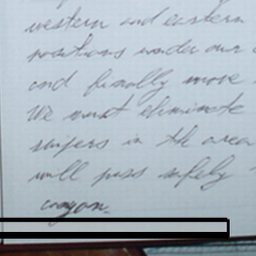 western and eastern
positions under our
and finally move
We must eliminate
snipers in the area
will pass safely